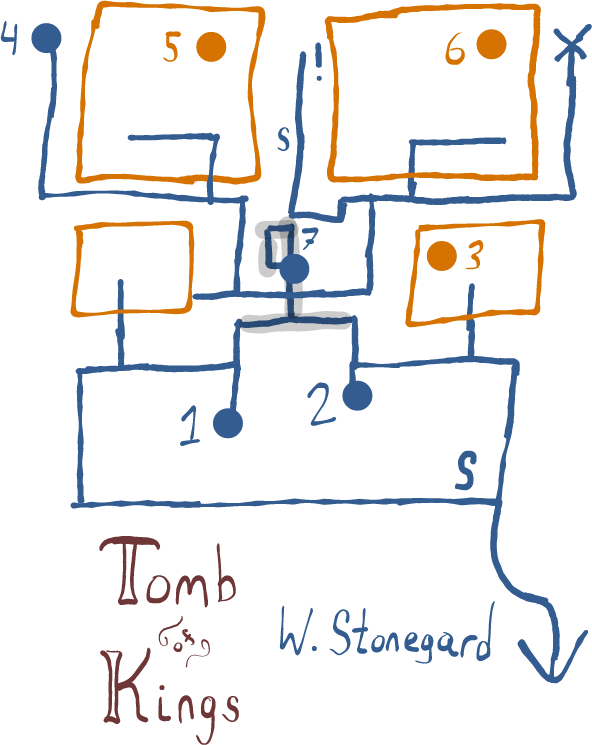 4
5
!
6
X
S
7
3
1
2
S
Tomb
of
Kings
W. Stonegard